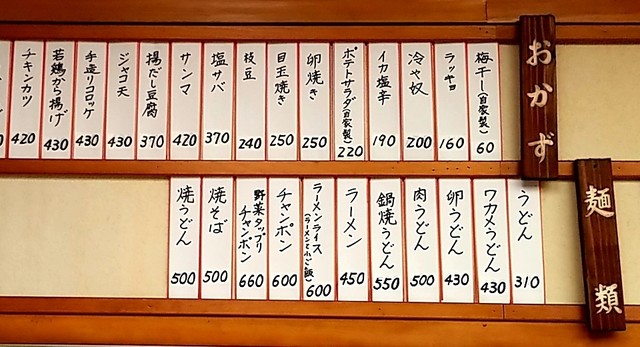 おかず
梅干し(自家製) 60
ラッキョ 160
冷や奴 200
イカ塩辛 190
ポテトサラダ(自家製) 220
卵焼き 250
目玉焼き 250
枝豆 240
塩サバ 370
サンマ 420
揚だし豆腐 370
ジャコ天 430
手造りコロッケ 430
若鶏から揚げ 430
チキンカツ 420
麺類
うどん 310
ワカメうどん 430
卵うどん 430
肉うどん 500
鍋焼うどん 550
ラーメン 450
ラーメンライス(ラーメンと小ご飯) 600
チャンポン 600
野菜タップリチャンポン 660
焼そば 500
焼うどん 500